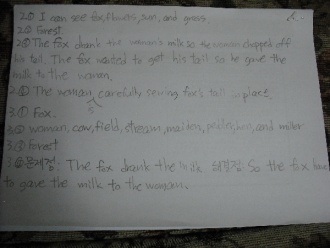 2.① I can see fox, flowers, sun, and grass.
2.② Forest.
2.③ The fox drank the woman's milk so the woman chopped off
his tail. The fox wanted to get his tail so he gave the
milk to the woman.
2.④ The woman carefully sewing fox's tail in place.
3.① Fox.
3.② woman, cow, field, stream, maiden, peddler, hen, and miller
3.③ Forest
3.④ 문제점: The fox drank the milk 해결점: So the fox have
to gave the milk to the woman.